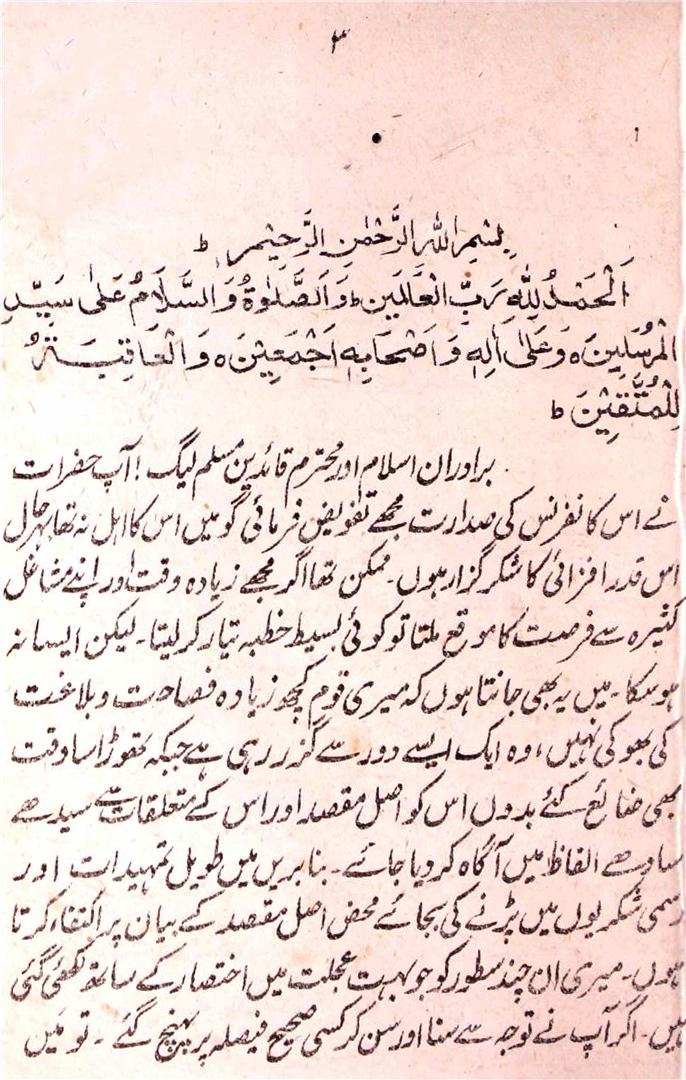 ۳
بِسْمِ اللهِ الرَّحْمٰنِ الرَّحِيْمِ ط
اَلْحَمْدُ لِلّٰهِ رَبِّ الْعَالَمِيْنَ ط وَالصَّلٰوةُ وَالسَّلَامُ عَلٰى سَيِّدِ
الْمُرْسَلِيْنَ ه وَعَلٰى اٰلِهٖ وَاَصْحَابِهٖ اَجْمَعِيْنَ ه وَالْعَاقِبَةُ
لِلْمُتَّقِيْنَ ط
برادران اسلام اور محترم قائدین مسلم لیگ! آپ حضرات
نے اس کانفرنس کی صدارت مجھے تفویض فرمائی گو میں اس کا اہل نہ تھا بہرحال
اس قدر افزائی کا شکر گزار ہوں۔ ممکن تھا اگر مجھے زیادہ وقت اور اپنے مشاغل
کثیرہ سے فرصت کا موقع ملتا تو کوئی بسیط خطبہ تیار کر لیتا۔ لیکن ایسا نہ
ہو سکا۔ میں یہ بھی جانتا ہوں کہ میری قوم کچھ زیادہ فصاحت و بلاغت
کی بھوکی نہیں، وہ ایک ایسے دور سے گزر رہی ہے جبکہ تھوڑا سا وقت
بھی ضائع کئے بدوں اس کو اصل مقصد اور اس کے متعلقات سے سیدھے
سادھے الفاظ میں آگاہ کر دیا جائے۔ بنا بریں میں طویل تمہیدات اور
رسمی شکریوں میں پڑنے کی بجائے محض اصل مقصد کے بیان پر اکتفاء کرتا
ہوں۔ میری ان چند سطور کو جو بہت عجلت میں اختصار کے ساتھ لکھی گئی
ہیں۔ اگر آپ نے توجہ سے سنا اور سن کر کسی صحیح فیصلہ پر پہنچ گئے۔ تو میں